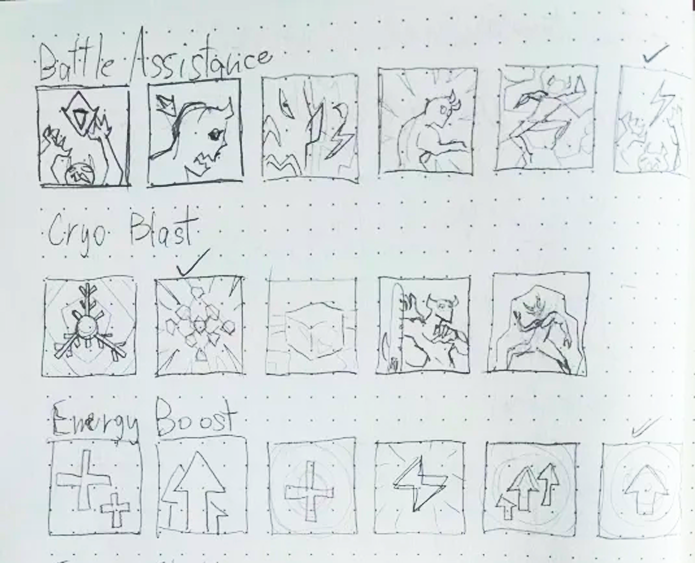 Battle Assistance
Cryo Blast
Energy Boost